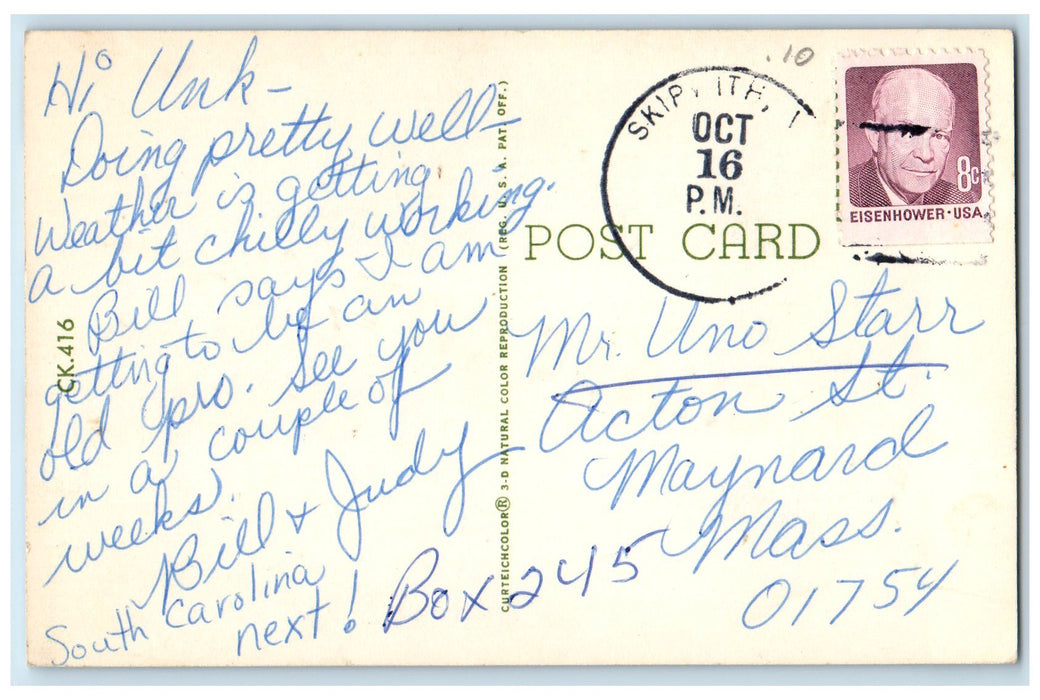 Hi Unk -
Doing pretty well -
Weather is getting
a bit chilly working.
Bill says I am
getting to be an
old pro. See you
in a couple of
weeks.
Bill & Judy
South Carolina
next!
CK.416
CURTEICHCOLOR® 3-D NATURAL COLOR REPRODUCTION (REG. U. S. A. PAT. OFF.)
POST CARD
.10
OCT
16
P.M.
8c
EISENHOWER·USA
Mr. Uno Starr
Acton St.
Maynard
Mass.
01754
Box 245